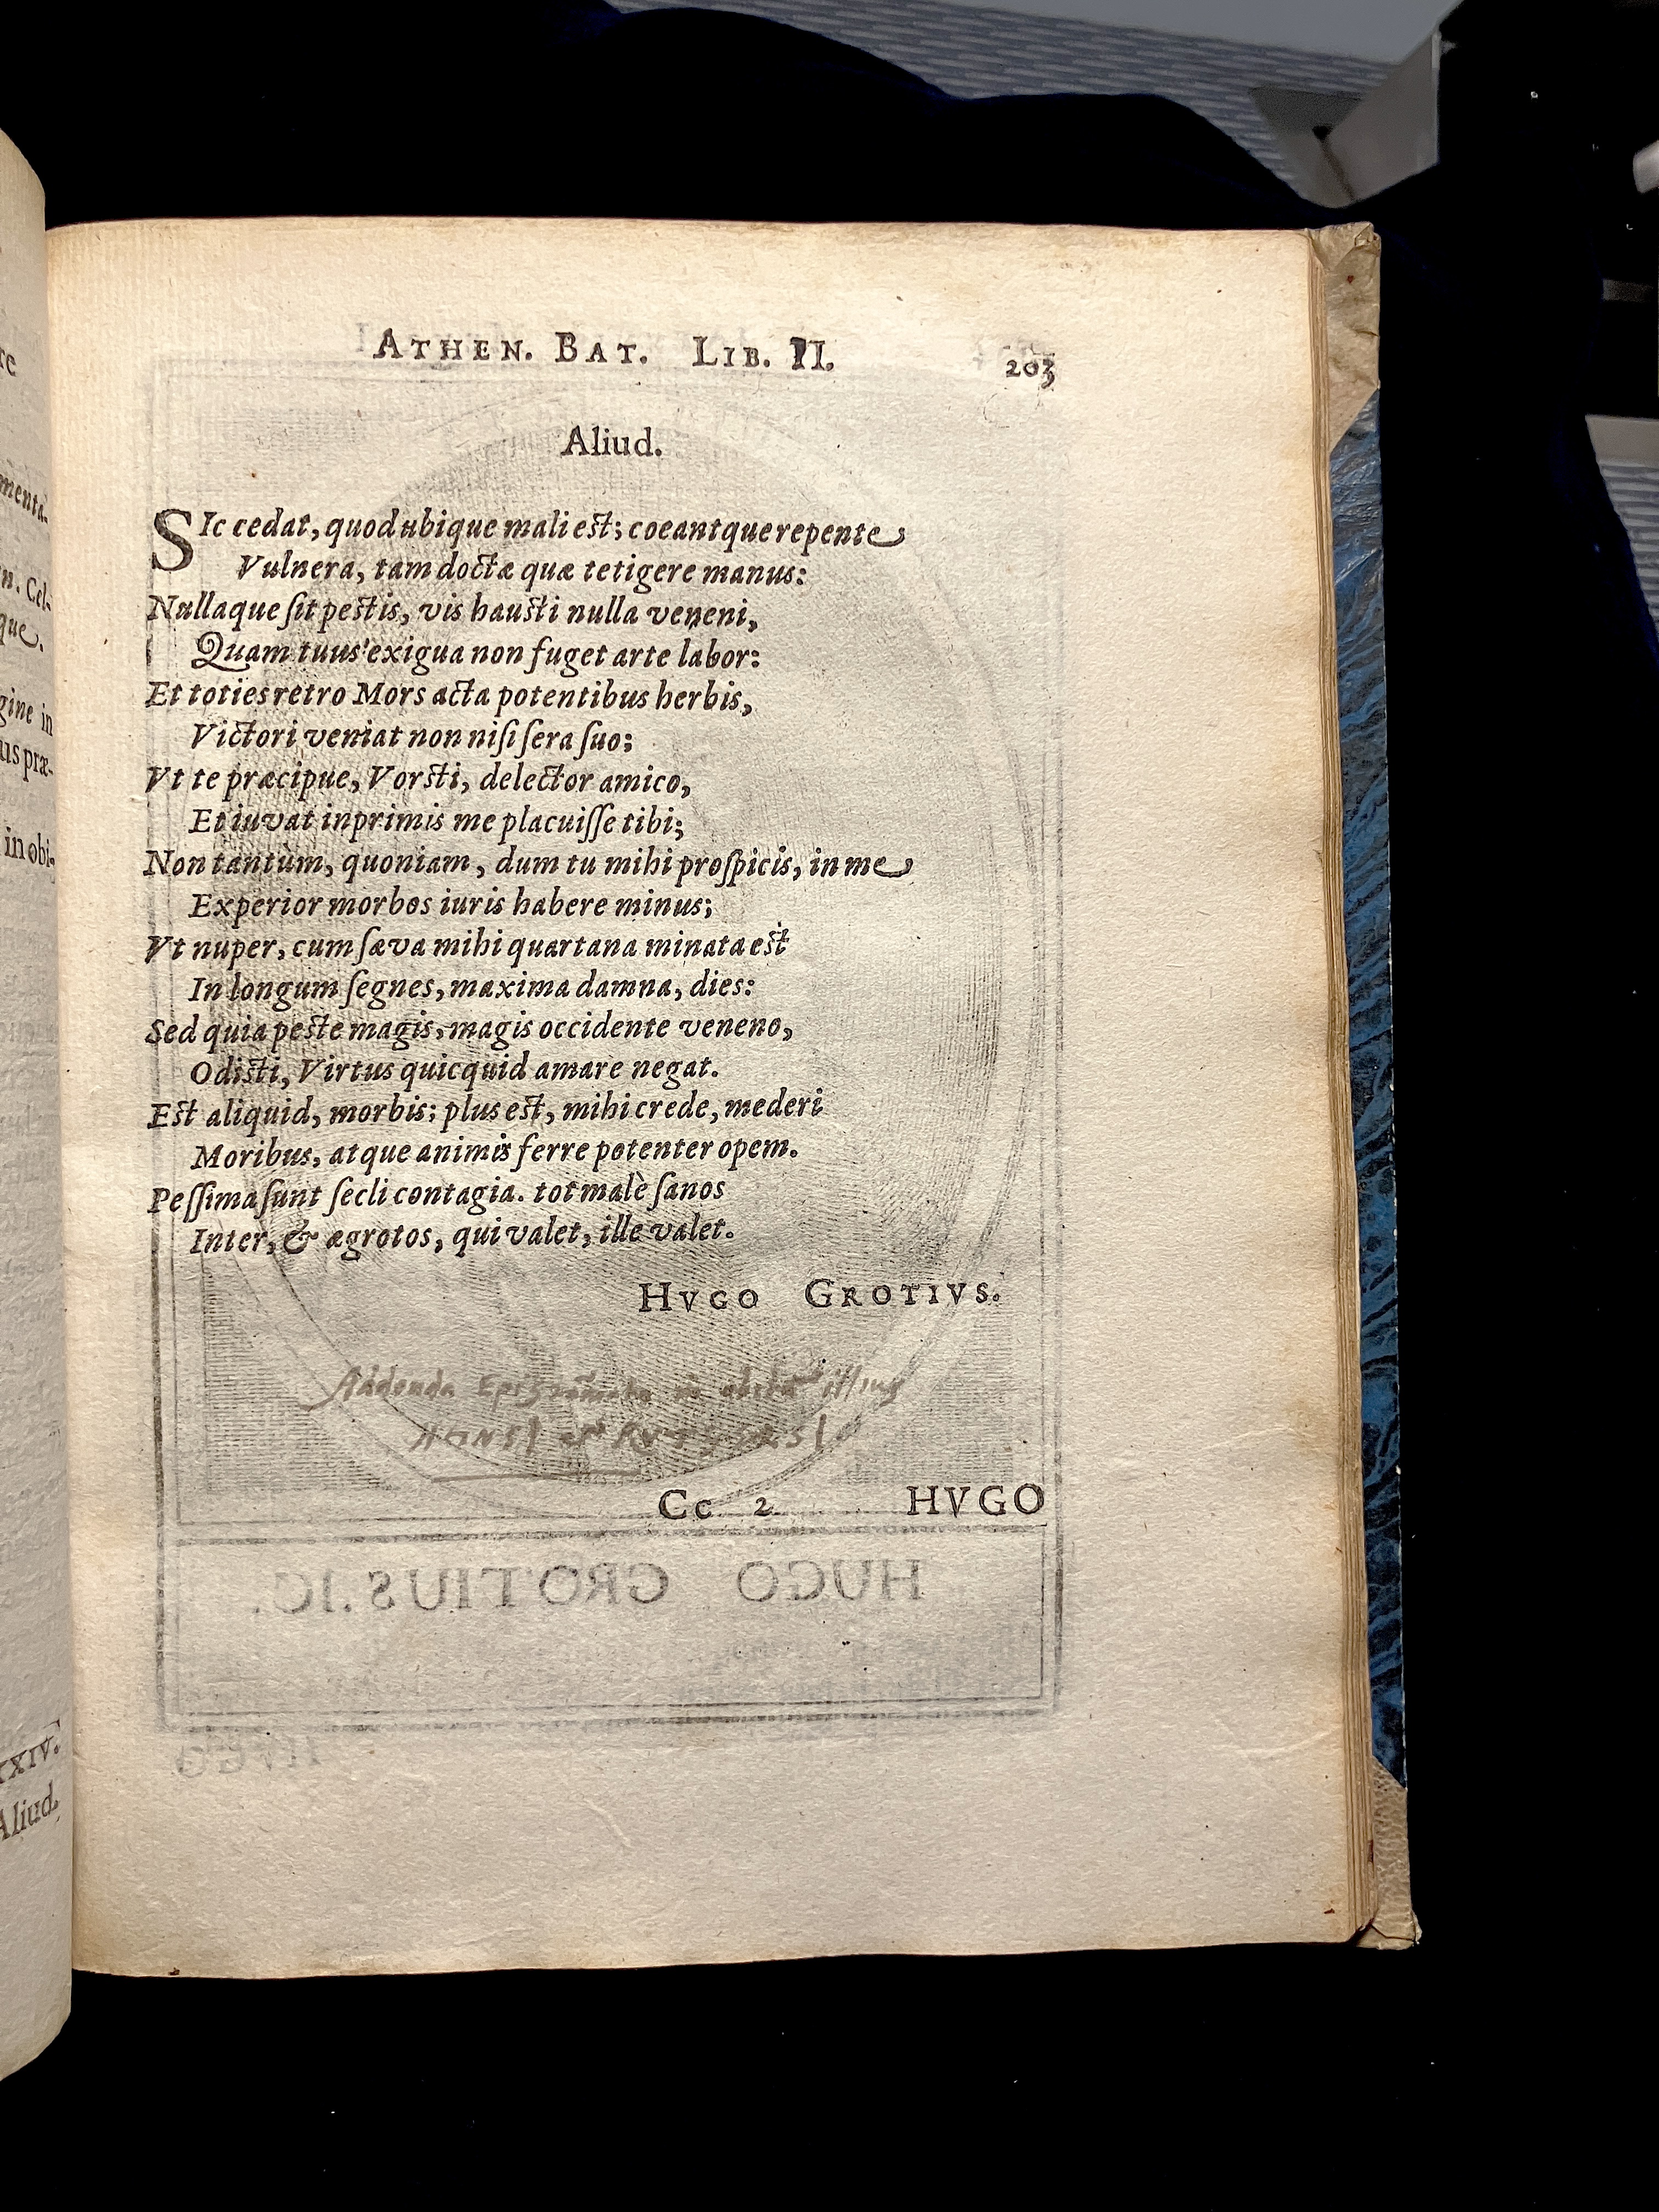 ATHEN. BAT. LIB. II.
203
Aliud.
SIc cedat, quod ubique mali est; coeantque repente
Vulnera, tam doctæ quæ tetigere manus:
Nullaque ſit pestis, vis hausti nulla veneni,
Quam tuus exigua non fuget arte labor:
Et toties retro Mors acta potentibus herbis,
Victori veniat non niſi ſera ſuo;
Vt te præcipue, Vorsti, delector amico,
Et iuvat inprimis me placuiſſe tibi;
Non tantùm, quoniam, dum tu mihi proſpicis, in me
Experior morbos iuris habere minus;
Vt nuper, cum ſæva mihi quartana minata est
In longum ſegnes, maxima damna, dies:
Sed quia peste magis, magis occidente veneno,
Odisti, Virtus quicquid amare negat.
Est aliquid, morbis; plus est, mihi crede, mederi
Moribus, atque animis ferre potenter opem.
Peſſima ſunt ſecli contagia. tot malè ſanos
Inter, & ægrotos, qui valet, ille valet.
HVGO GROTIVS.
Addenda
Cc 2 HVGO
HUGO GROTIUS. IC.
re
menta-
n. Cel-
que.
gine in
us præ-
in obi-
XXIV.
Aliud.